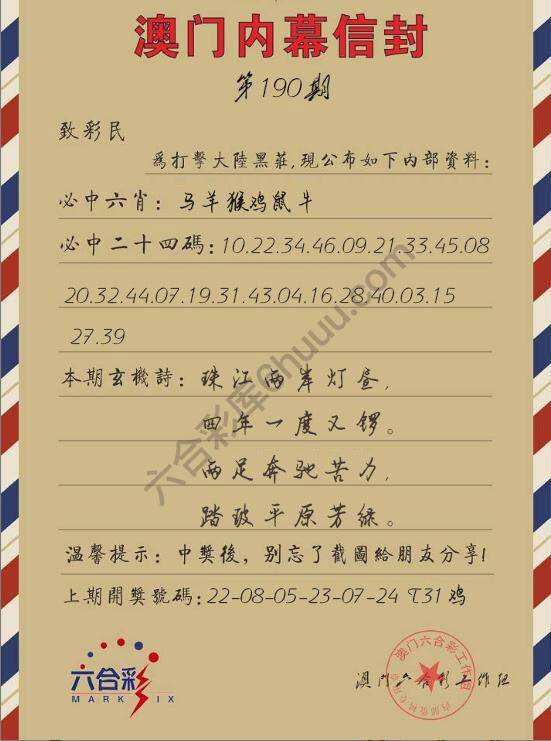 澳门内幕信封
第190期
致彩民
為打擊大陸黑莊,現公布如下内部資料:
必中六肖: 马羊猴鸡鼠牛
必中二十四碼:10.22.34.46.09.21.33.45.08
20.32.44.07.19.31.43.04.16.28.40.03.15
27.39
本期玄機詩: 珠江兩岸灯昼,
四年一度又锣。
兩足奔驰苦力,
踏玻平原芳緑。
温馨提示:中獎後,别忘了截圖給朋友分享!
上期開獎號碼:22-08-05-23-07-24 T31 鸡
六合彩库@huuu.com
六合彩
MARK SIX
澳门六合彩工作组
澳门六合彩工作组